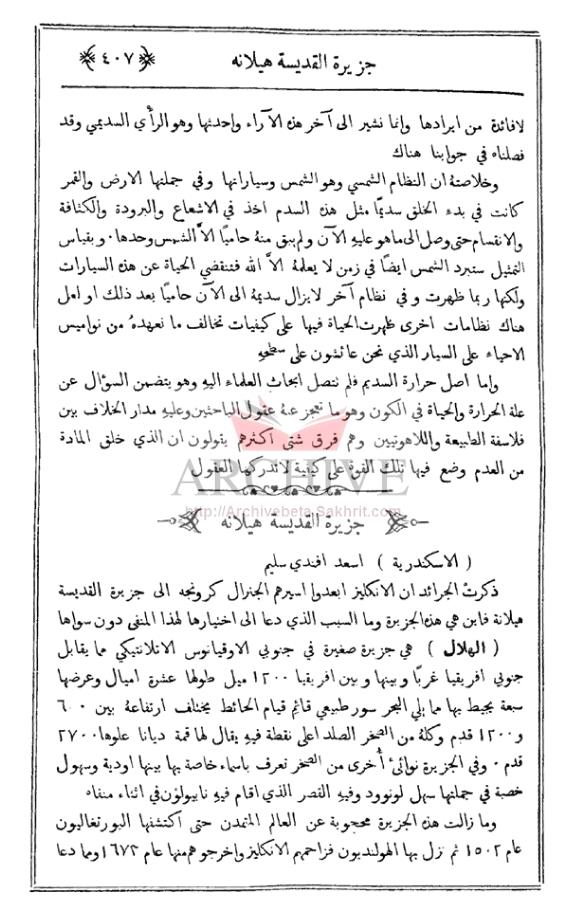 جزيرة القديسة هيلانه
﴿٤٠٧﴾
لافائدة من ايرادها وانما نشير الى آخر هذه الآراء واحدثها وهو الرأي السديمي وقد
فصلناه في جوابنا هناك
وخلاصتهُ ان النظام الشمسي وهو الشمس وسياراتها وفي جملتها الارض والقمر
كانت في بدء الخلق سديمًا مثل هذه السدم اخذ في الاشعاع والبرودة والكثافة
والانقسام حتى وصل الى ما هو عليهِ الآن ولم يبق منهُ حاميًا الاَّ الشمس وحدها ٠ وبقياس
التمثيل ستبرد الشمس ايضًا في زمن لا يعلمهُ الاَّ الله فتنقضي الحياة عن هذه السيارات
ولكنها ربما ظهرت في نظام آخر لا يزال سديمهُ الى الآن حاميًا بعد ذلك او لعل
هناك نظامات اخرى ظهرت الحياة فيها على كيفيات تخالف ما نعهدهُ من نواميس
الاحياء على السيار الذي نحن عائشون على سطحهِ
واما اصل حرارة السديم فلم تتصل ابحاث العلماء اليهِ وهو يتضمن السؤال عن
علة الحرارة والحياة في الكون وهو ما تعجز عنهُ عقول الباحثين وعليهِ مدار الخلاف بين
فلاسفة الطبيعة واللاهوتيين وهم فرق شتى اكثرهم يقولون ان الذي خلق المادة
من العدم وضع فيها تلك القوة على كيفية لا تدركها العقول
ARCHIVE
http://Archivebeta.Sakhrit.com
جزيرة القديسة هيلانه
( الاسكندرية ) اسعد افندي سليم
ذكرت الجرائد ان الانكليز ابعدوا اسيرهم الجنرال كرونجه الى جزيرة القديسة
هيلانة فاين هي هذه الجزيرة وما السبب الذي دعا الى اختيارها لهذا المنفى دون سواها
( الهلال ) هي جزيرة صغيرة في جنوبي الاوقيانوس الاتلانتيكي مما يقابل
جنوبي افريقيا غربًا وبينها وبين افريقيا ١٢٠٠ ميل طولها عشرة اميال وعرضها
سبعة يحيط بها مما يلي البحر سور طبيعي قائم قيام الحائط يختلف ارتفاعهُ بين ٦٠٠
و١٢٠٠ قدم وكلهُ من الصخر الصلد اعلى نقطة فيهِ يقال لها قمة ديانا علوها ٢٧٠٠
قدم ٠ وفي الجزيرة نوائى أخرى من الصخر تعرف باسماء خاصة بها بينها اودية وسهول
خصبة في جملتها سهل لونوود وفيهِ القصر الذي اقام فيهِ نابوليون في اثناء منفاه
وما زالت هذه الجزيرة محجوبة عن العالم المتمدن حتى اكتشفها البورتغاليون
عام ١٥٠٢ ثم نزل بها الهولنديون فزاحمهم الانكليز واخرجوهم منها عام ١٦٧٢ ومما دعا